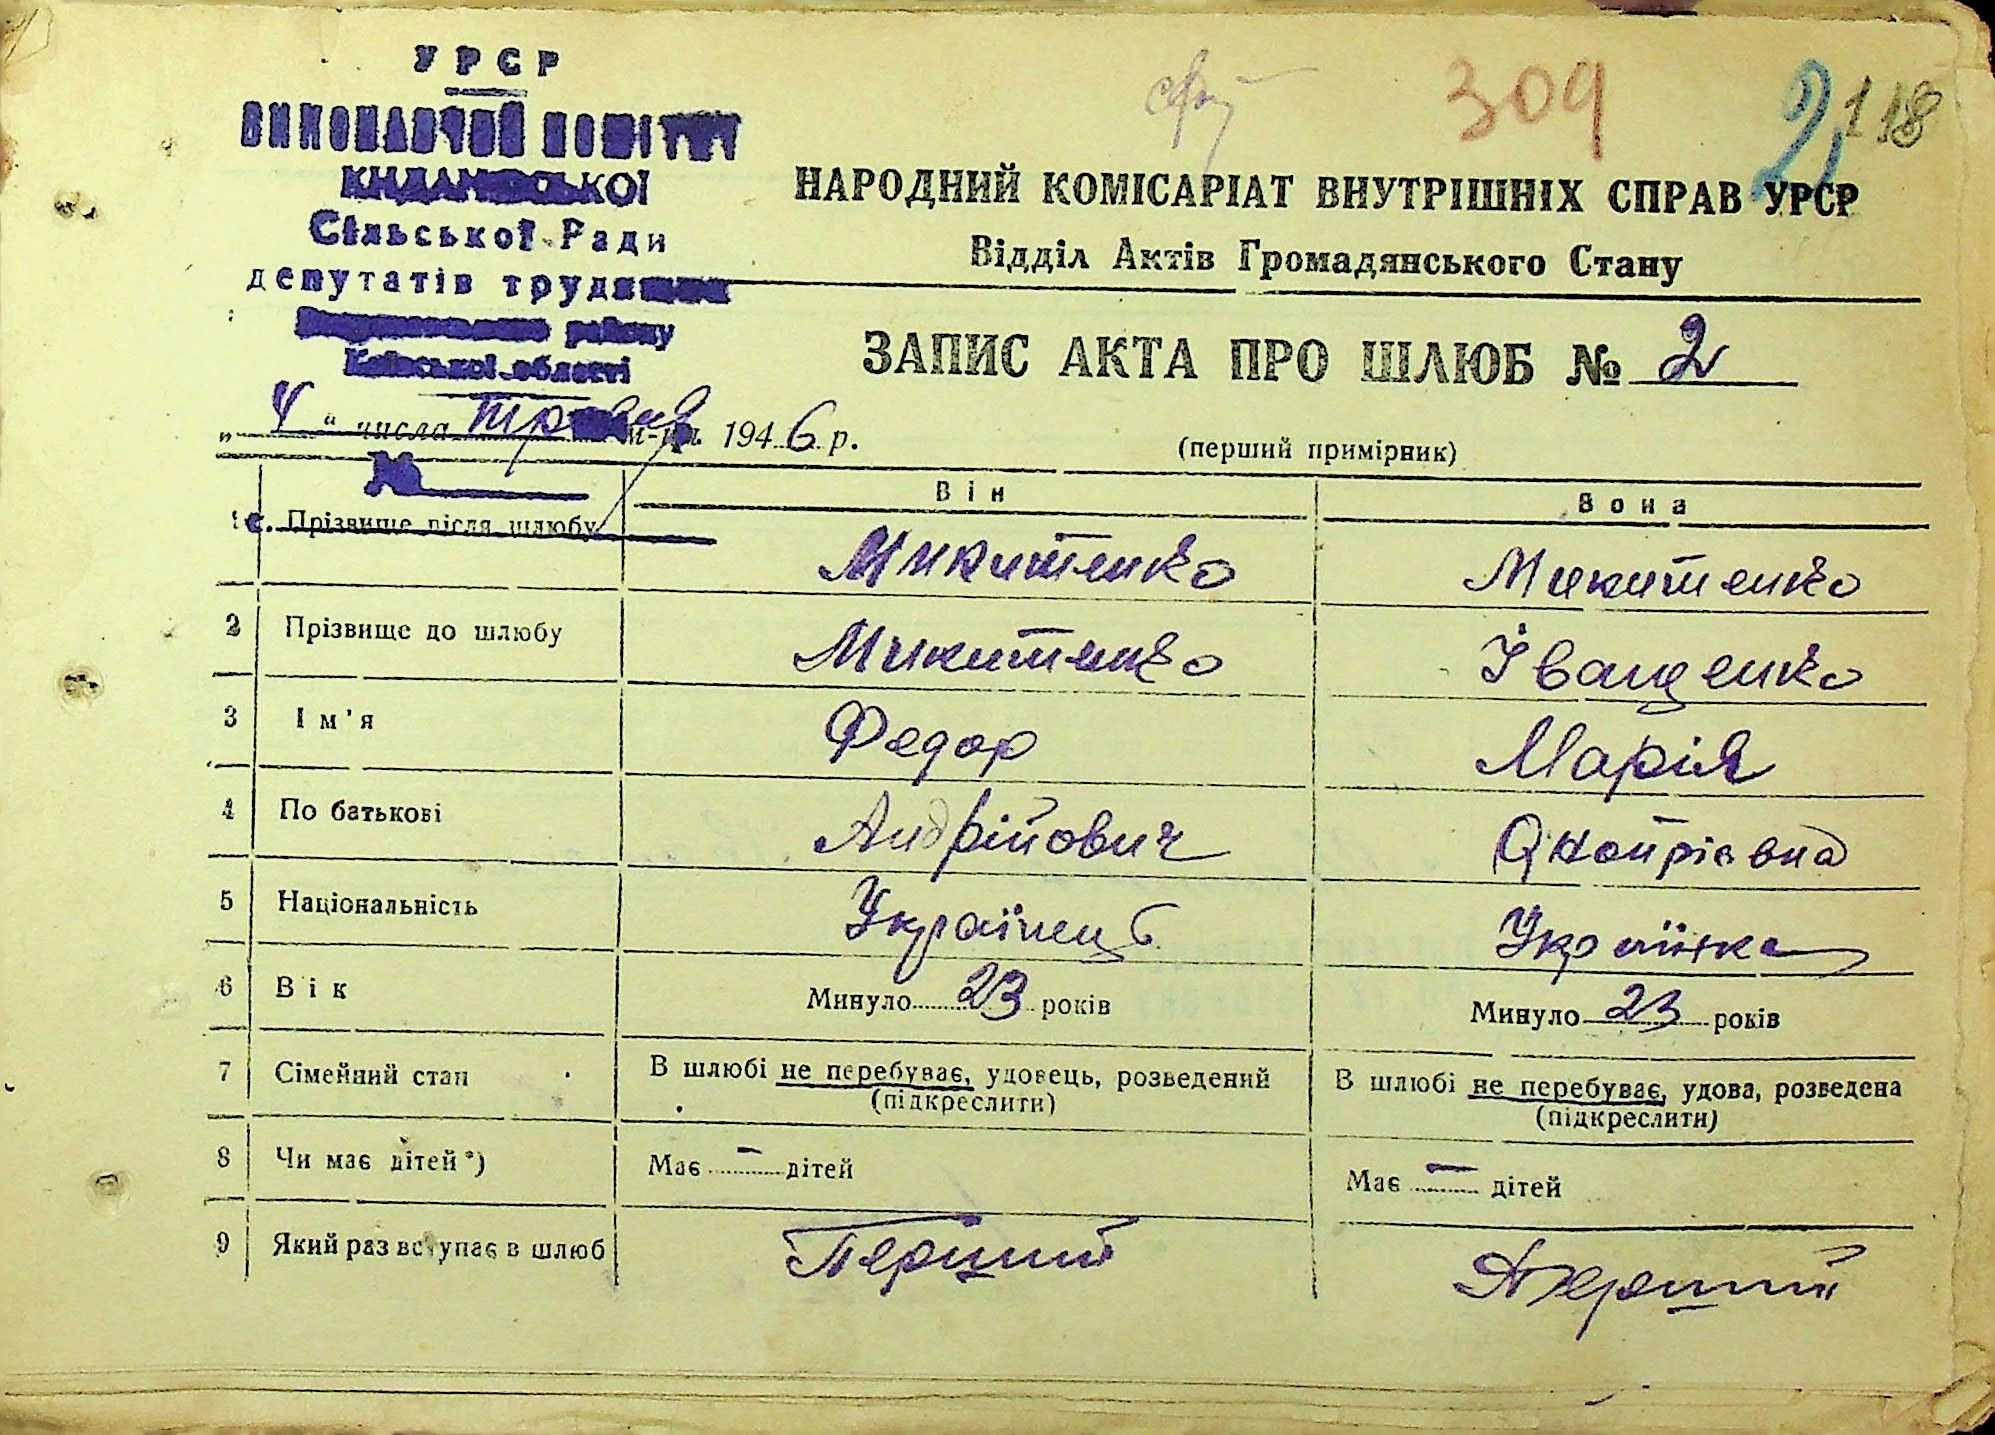 УРСР
309
2
118
ВИКОНАВЧИЙ КОМІТЕТ
Сільської Ради
депутатів трудящих
району
Київської області
НАРОДНИЙ КОМІСАРІАТ ВНУТРІШНІХ СПРАВ УРСР
Відділ Актів Громадянського Стану
ЗАПИС АКТА ПРО ШЛЮБ № 2
„ 4 “ числа травня м-ця 1946 р.
(перший примірник)
№
Він
Вона
1 Прізвище після шлюбу Микитенко Микитенко
2 Прізвище до шлюбу Микитенко Іващенко
3 Ім'я Федор Марія
4 По батькові Андрійович Онопрієвна
5 Національність Українець Українка
6 Вік Минуло 23 років Минуло 23 років
7 Сімейний стан В шлюбі не перебуває, удовець, розведений В шлюбі не перебуває, удова, розведена
(підкреслити) (підкреслити)
8 Чи має дітей*) Має — дітей Має — дітей
9 Який раз вступає в шлюб Перший Перший